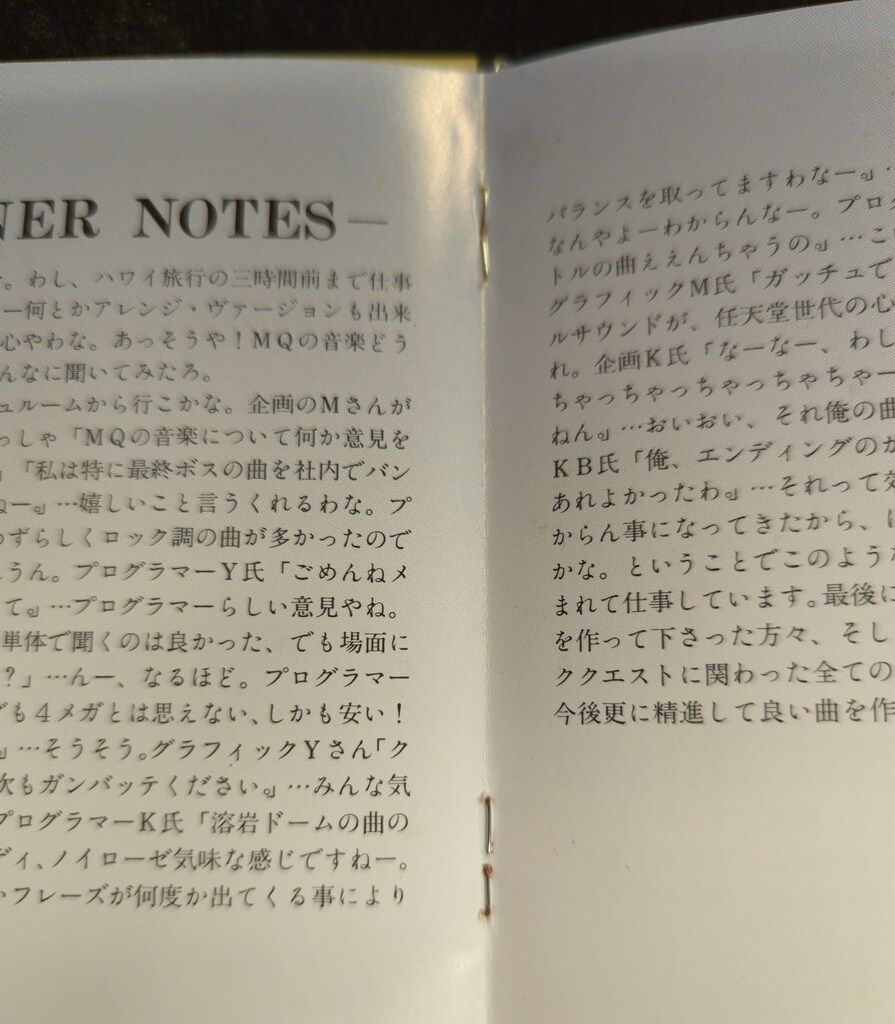 NER NOTES—
。わし、ハワイ旅行の三時間前まで仕事
ー何とかアレンジ・ヴァージョンも出来
心やわな。あっそうや！MQの音楽どう
んなに聞いてみたろ。
ュルームから行こかな。企画のMさんが
っしゃ「MQの音楽について何か意見を
」「私は特に最終ボスの曲を社内でバン
ねー。」…嬉しいこと言うくれるわな。プ
めずらしくロック調の曲が多かったので
うん。プログラマーY氏「ごめんねメ
て。」…プログラマーらしい意見やね。
単体で聞くのは良かった、でも場面に
？」…んー、なるほど。プログラマー
でも4メガとは思えない、しかも安い！
」…そうそう。グラフィックYさん「ク
次もガンバッテください。」…みんな気
プログラマーK氏「溶岩ドームの曲の
ディ、ノイローゼ気味な感じですねー。
いフレーズが何度か出てくる事により
バランスを取ってますわなー。」…
なんやよーわからんなー。プログ
トルの曲ええんちゃうの。」…こ
グラフィックM氏「ガッチュで
ルサウンドが、任天堂世代の心
れ。企画K氏「なーなー、わし
ちゃっちゃっちゃっちゃちゃー
ねん。」…おいおい、それ俺の曲
KB氏「俺、エンディングのか
あれよかったわ。」…それって効
からん事になってきたから、
かな。ということでこのような
まれて仕事しています。最後に
を作って下さった方々、そし
ククエストに関わった全ての
今後更に精進して良い曲を作